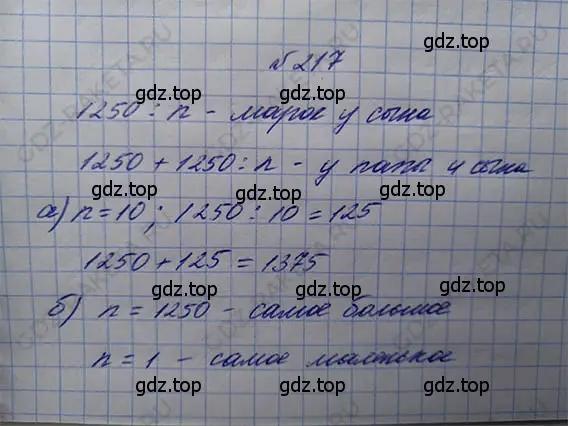 №217
1250 : n - марок у сына
1250 + 1250 : n - у папы и сына
а) n = 10 ; 1250 : 10 = 125
1250 + 125 = 1375
б) n = 1250 - самое большое
n = 1 - самое маленькое
gdz.top
gdz.top
gdz.top
gdz.top
gdz.top
gdz.top
gdz.top
gdz.top
gdz.top
gdz.top
gdz.top
gdz.top
gdz.top